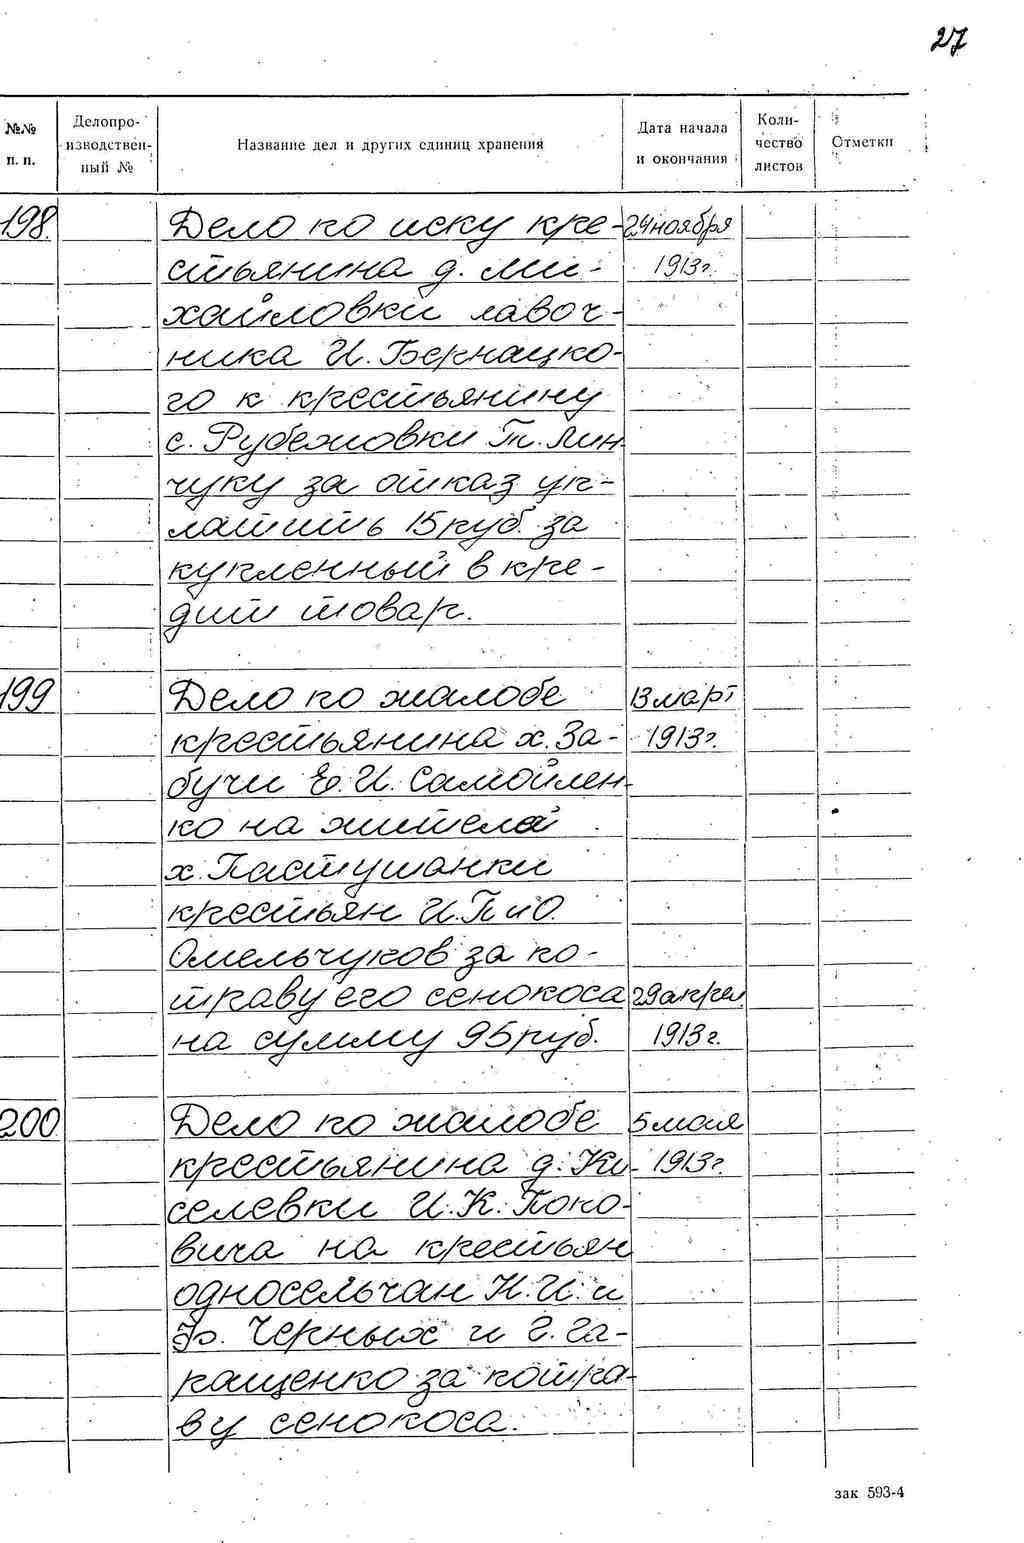 27
№№ п. п. Делопроизводственный № Название дел и других единиц хранения Дата начала и окончания Количество листов Отметки
198. Дело по иску кре- 24 ноября
стьянина д. Ми- 1913г.
хайловки лавоч-
ника И. Бернацко-
го к крестьянину
с. Рубежовки Т. Лин-
чуку за отказ уп-
латить 15 руб. за
купленный в кре-
дит товар.
199 Дело по жалобе 13 март
крестьянина х. За- 1913г.
бучи Е. И. Самойлен-
ко на жителей
х. Пастушанки
крестьян И. П и О.
Омельчуков за по-
траву его сенокоса 29 апрел.
на сумму 95 руб. 1913г.
200 Дело по жалобе 5 мая
крестьянина д. Ки- 1913г.
селевки И. К. Попо-
вича на крестьян
односельчан Н. И. и
Ф. Черных и Г. Га-
ращенко за потра-
ву сенокоса.
зак 593-4